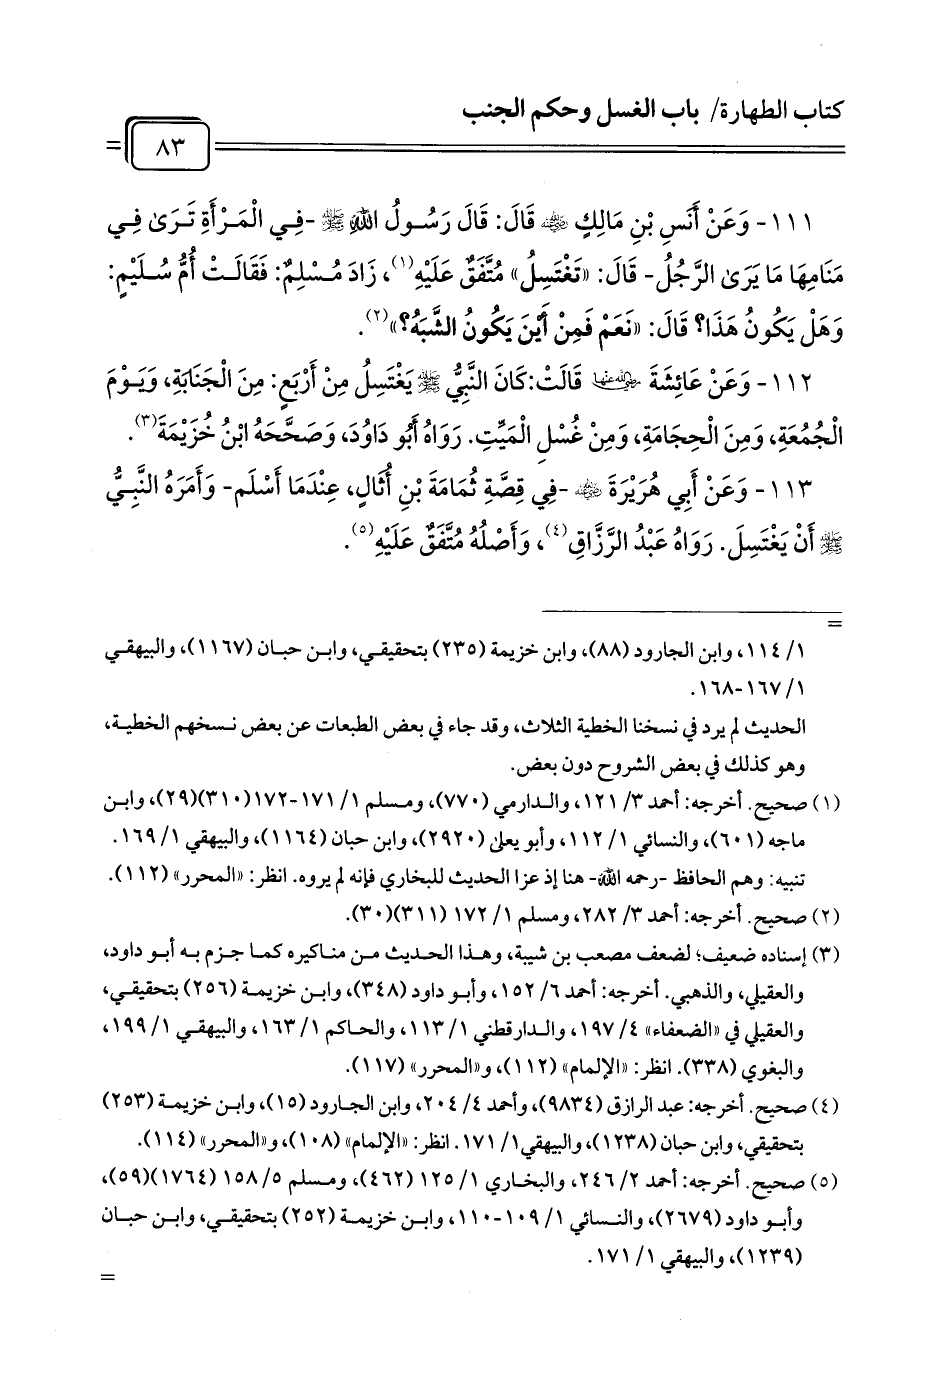 كتاب الطهارة/ باب الغسل وحكم الجنب
٨٣
١١١- وَعَنْ أَنَسِ بْنِ مَالِكٍ ﵁ قَالَ: قَالَ رَسُولُ اللَّهِ ﷺ -فِي الْمَرْأَةِ تَرَىٰ فِي
مَنَامِهَا مَا يَرَىٰ الرَّجُلُ- قَالَ: «تَغْتَسِلُ» مُتَّفَقٌ عَلَيْهِ(١)، زَادَ مُسْلِمٌ: فَقَالَتْ أُمُّ سُلَيْمٍ:
وَهَلْ يَكُونُ هَذَا؟ قَالَ: «نَعَمْ فَمِنْ أَيْنَ يَكُونُ الشَّبَهُ؟»(٢).
١١٢- وَعَنْ عَائِشَةَ ﵂ قَالَتْ: كَانَ النَّبِيُّ ﷺ يَغْتَسِلُ مِنْ أَرْبَعٍ: مِنَ الْجَنَابَةِ، وَيَوْمَ
الْجُمُعَةِ، وَمِنَ الْحِجَامَةِ، وَمِنْ غُسْلِ الْمَيِّتِ. رَوَاهُ أَبُو دَاوُدَ، وَصَحَّحَهُ ابْنُ خُزَيْمَةَ(٣).
١١٣- وَعَنْ أَبِي هُرَيْرَةَ ﵁ -فِي قِصَّةِ ثُمَامَةَ بْنِ أُثَالٍ، عِنْدَمَا أَسْلَم- وَأَمَرَهُ النَّبِيُّ
ﷺ أَنْ يَغْتَسِلَ. رَوَاهُ عَبْدُ الرَّزَّاقِ(٤)، وَأَصْلُهُ مُتَّفَقٌ عَلَيْهِ(٥).
=
١/ ١١٤، وابن الجارود (٨٨)، وابن خزيمة (٢٣٥) بتحقيقي، وابن حبان (١١٦٧)، والبيهقي
١/ ١٦٧-١٦٨.
الحديث لم يرد في نسخنا الخطية الثلاث، وقد جاء في بعض الطبعات عن بعض نسخهم الخطية،
وهو كذلك في بعض الشروح دون بعض.
(١) صحيح. أخرجه: أحمد ٣/ ١٢١، والدارمي (٧٧٠)، ومسلم ١/ ١٧١-١٧٢(٣١٠)(٢٩)، وابن
ماجه (٦٠١)، والنسائي ١/ ١١٢، وأبو يعلى (٢٩٢٠)، وابن حبان (١١٦٤)، والبيهقي ١/ ١٦٩.
تنبيه: وهم الحافظ -رحمه الله- هنا إذ عزا الحديث للبخاري فإنه لم يروه. انظر: «المحرر» (١١٢).
(٢) صحيح. أخرجه: أحمد ٣/ ٢٨٢، ومسلم ١/ ١٧٢ (٣١١)(٣٠).
(٣) إسناده ضعيف؛ لضعف مصعب بن شيبة، وهذا الحديث من مناكيره كما جزم به أبو داود،
والعقيلي، والذهبي. أخرجه: أحمد ٦/ ١٥٢، وأبو داود (٣٤٨)، وابن خزيمة (٢٥٦) بتحقيقي،
والعقيلي في «الضعفاء» ٤/ ١٩٧، والدارقطني ١/ ١١٣، والحاكم ١/ ١٦٣، والبيهقي ١/ ١٩٩،
والبغوي (٣٣٨). انظر: «الإلمام» (١١٢)، و«المحرر» (١١٧).
(٤) صحيح. أخرجه: عبد الرازق (٩٨٣٤)، وأحمد ٤/ ٢٠٤، وابن الجارود (١٥)، وابن خزيمة (٢٥٣)
بتحقيقي، وابن حبان (١٢٣٨)، والبيهقي١/ ١٧١. انظر: «الإلمام» (١٠٨)، و«المحرر» (١١٤).
(٥) صحيح. أخرجه: أحمد ٢/ ٢٤٦، والبخاري ١/ ١٢٥ (٤٦٢)، ومسلم ٥/ ١٥٨ (١٧٦٤)(٥٩)،
وأبو داود (٢٦٧٩)، والنسائي ١/ ١٠٩-١١٠، وابن خزيمة (٢٥٢) بتحقيقي، وابن حبان
(١٢٣٩)، والبيهقي ١/ ١٧١.
=